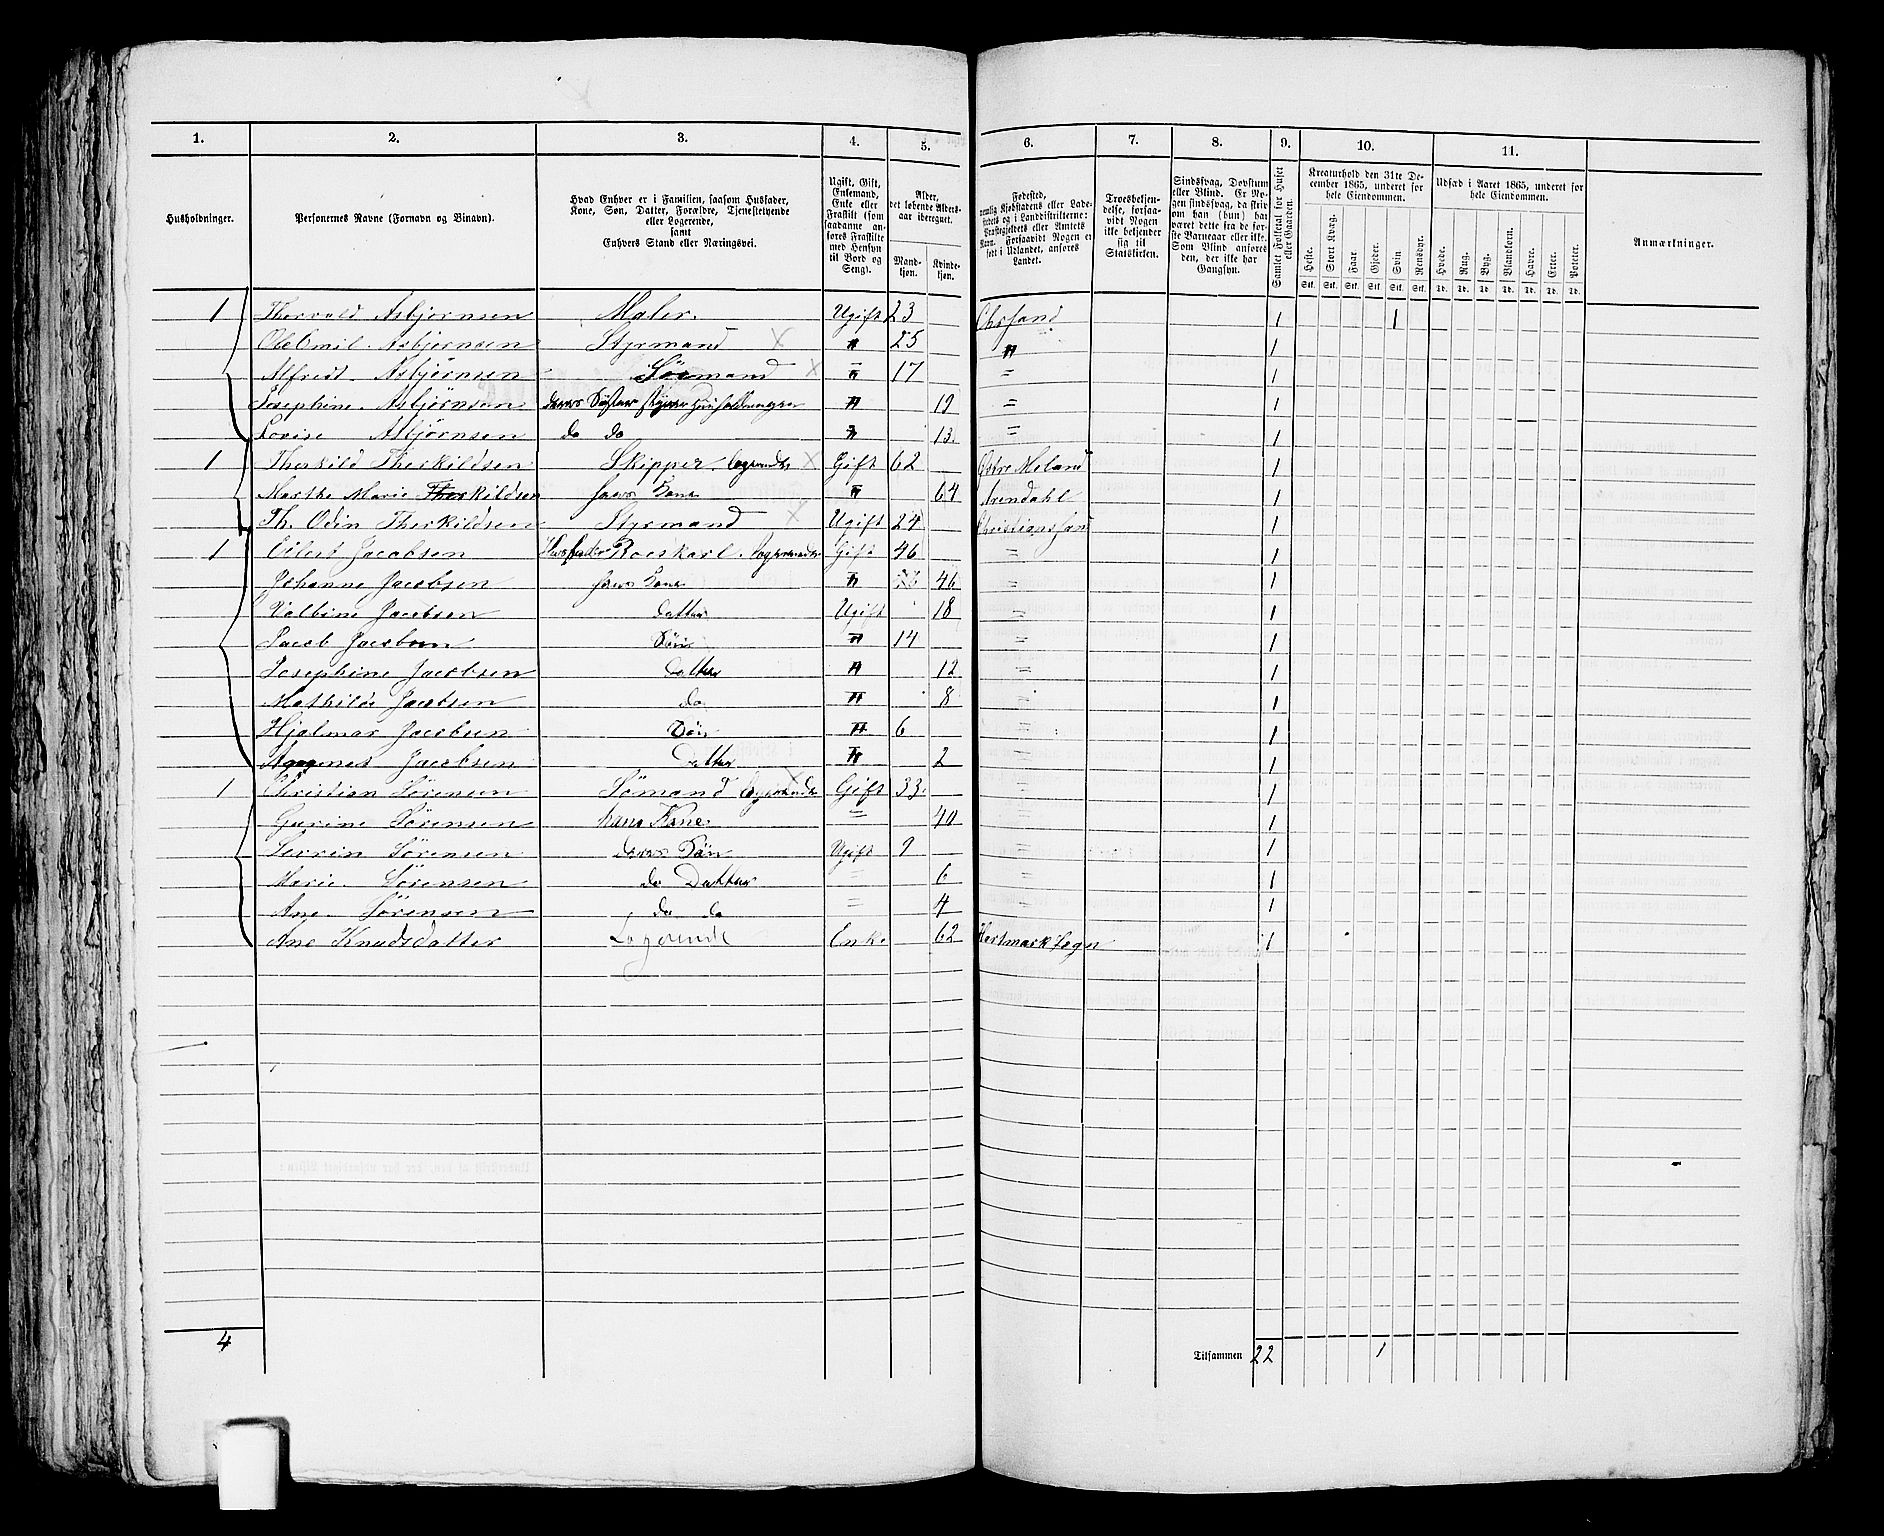 1. 2. 3. 4. 5. 6. 7. 8. 9. 10. 11.
Husholdninger.
Personernes Navne (Fornavn og Binavn).
Hvad Enhver er i Familien, saasom Husfader, Kone, Søn, Datter, Forældre, Tjenestetyende eller Logerende, samt Enhvers Stand eller Næringsvei.
Ugift, Gift, Enkemand, Enke eller Fraskilt (som saadanne anføres Fraskilte med Hensyn til Bord og Seng).
Alder, det løbende Aldersaar iberegnet.
Mandkjøn. Kvindekjøn.
Fødested, nemlig Kjøbstadens eller Ladestedets og i Landdistrikterne: Præstegjeldets eller Amtets Navn. Forsaavidt Nogen er født i Udlandet, anføres Landet.
Troesbekjendelse, forsaavidt Nogen ikke bekjender sig til Statskirken.
Sindssvag, Døvstum eller Blind. Er Nogen sindssvag, da skrives om han (hun) har været dette fra de første Barneaar eller ikke. Som Blind anføres den, der ikke har Gangsyn.
Samlet Folketal for Huset eller Gaarden.
Kreaturhold den 31te December 1865, underet for hele Eiendommen.
Heste. Stort Kvæg. Faar Gjeder. Svin Rensdyr.
Stk. Stk. Stk. Stk. Stk. Stk.
Udsæd i Aaret 1865, underet for hele Eiendommen.
Hvede. Rug. Byg. Blandkorn. Havre. Erter. Poteter.
Td. Td. Td. Td. Td. Td. Td.
Anmærkninger.
1 Thorvald Asbjörnsen Maler. Ugift 23 Chrsand 1 1
Ole Emil. Asbjörnsen Styrmand X " 25 " 1
Alfred. Asbjörnsen Sömand X " 17 = 1
Josephine. Asbjörnsen deres Söster styrer Huusholdningen " 19 = 1
Lovise Asbjörnsen do do " 13. = 1
1 Therkild Therkildsen Skipper. logerende X Gift 62 Østre Moland 1
Marthe Marie Therkildsen hans Kone " 64 Arendahl 1
Th. Odin Therkildsen Styrmand X Ugift 24 Christianssand 1
1 Eilert Jacobsen Huusfader Roerskarl. Logerende Gift 46 = 1
Johanne Jacobsen hans Kone " 46 = 1
Valbine Jacobsen datter Ugift 18 = 1
Jacob Jacobsen Sön " 14 = 1
Josephine Jacobsen datter " 12 = 1
Mathilde Jacobsen do " 8 = 1
Hjalmar Jacobsen Sön " 6 = 1
Agnes Jacobsen Datter " 2 = 1
1 Christian Sörensen Sömand logerende X Gift 33. = 1
Gurine Sörensen hans Kone. = 40 = 1
Severin Sörensen deres Sön Ugift 9 = 1
Marie. Sörensen do Datter = 6 = 1
Ane. Sörensen do do = 4 = 1
Ane Knudsdatter Logerende Enke 62 Hartmark Sogn 1
4
Tilsammen 22 1